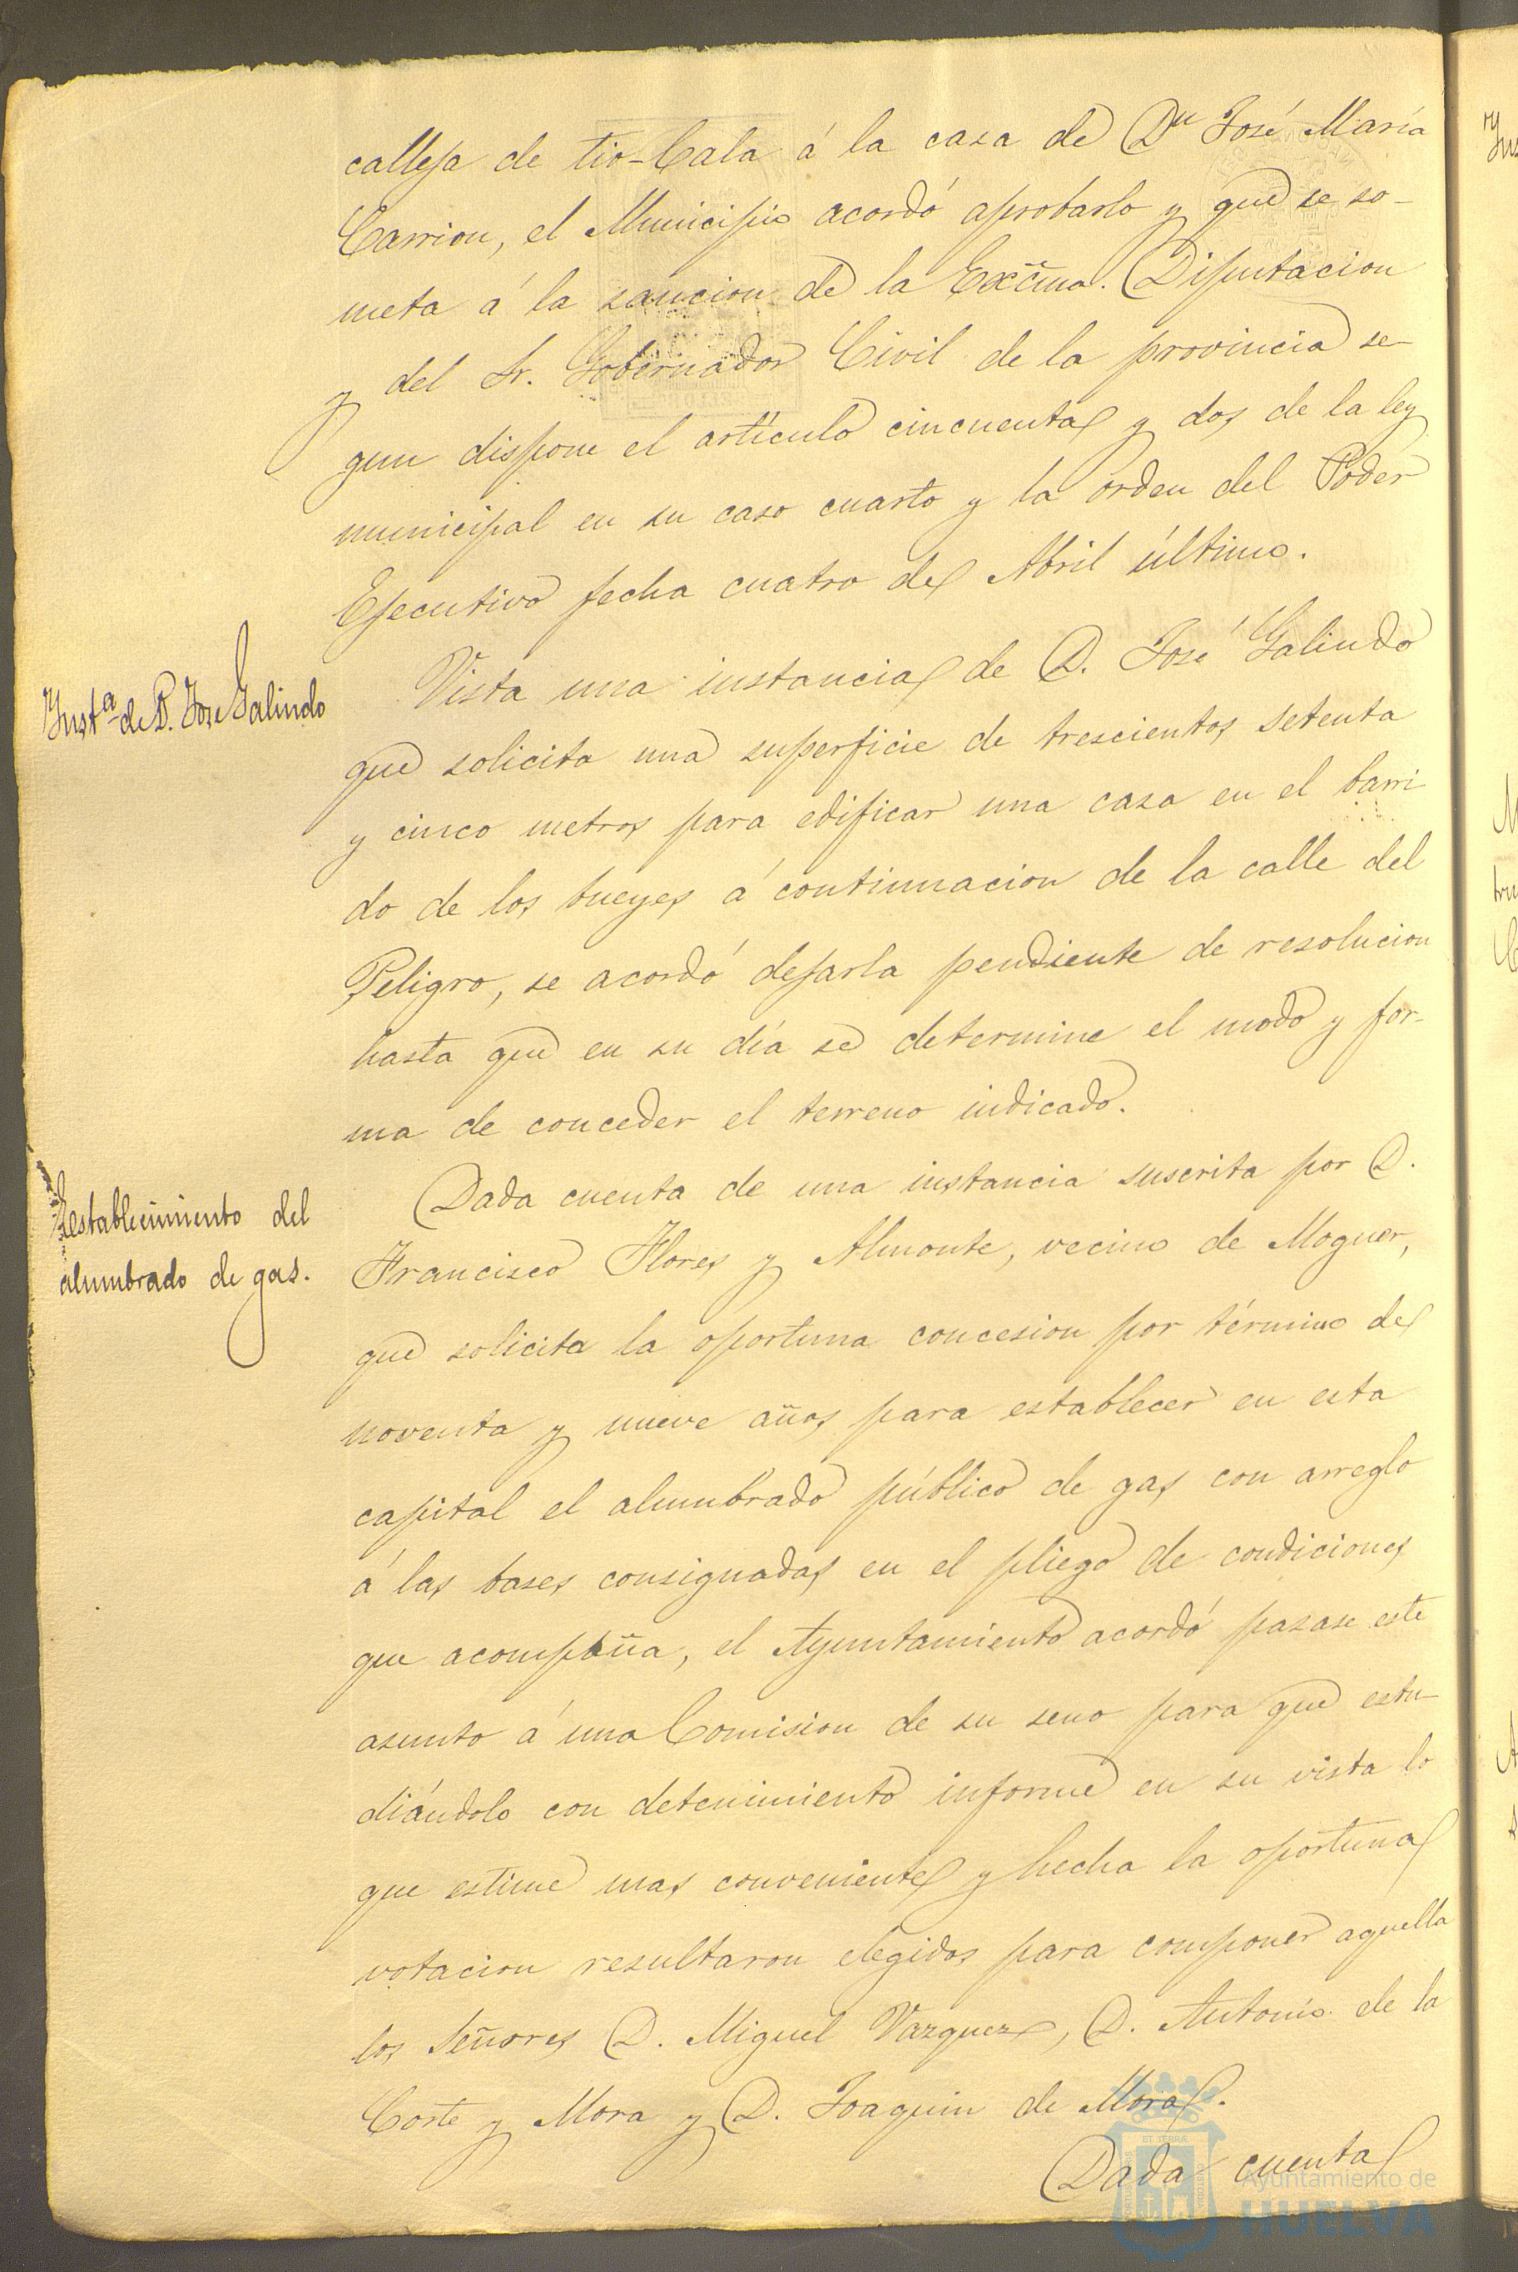 calleja de tio-Cala á la casa de Dn José María
Carrion, el Municipio acordó aprobarlo y que se so-
meta á la sancion de la Excma. Diputacion
y del Sr. Gobernador Civil de la provincia se-
gun dispone el artículo cincuenta y dos de la ley
municipal en su caso cuarto y la orden del Poder
Ejecutivo fecha cuatro de Abril último.
Inst.a de D. Jose Galindo
Vista una instancia de D. José Galindo
que solicita una superficie de trescientos setenta
y cinco metros para edificar una casa en el barri
do de los bueyes á continuacion de la calle del
Peligro, se acordó dejarla pendiente de resolucion
hasta que en su día se determine el modo y for-
ma de conceder el terreno indicado.
Establecimiento del
alumbrado de gas.
Dada cuenta de una instancia suscrita por D.
Francisco Flores y Almonte, vecino de Moguer,
que solicita la oportuna concesion por término de
noventa y nueve años para establecer en esta
capital el alumbrado público de gas con arreglo
á las bases consignadas en el pliego de condiciones
que acompaña, el Ayuntamiento acordó pasase este
asunto á una Comision de su seno para que estu-
diándolo con detenimiento informe en su vista lo
que estime mas conveniente y hecha la oportuna
votacion resultaron elegidos para componer aquella
los Señores D. Miguel Vazquez, D. Antonio de la
Corte y Mora y D. Joaquin de Mora.
Dada cuenta
Ayuntamiento de
HUELVA